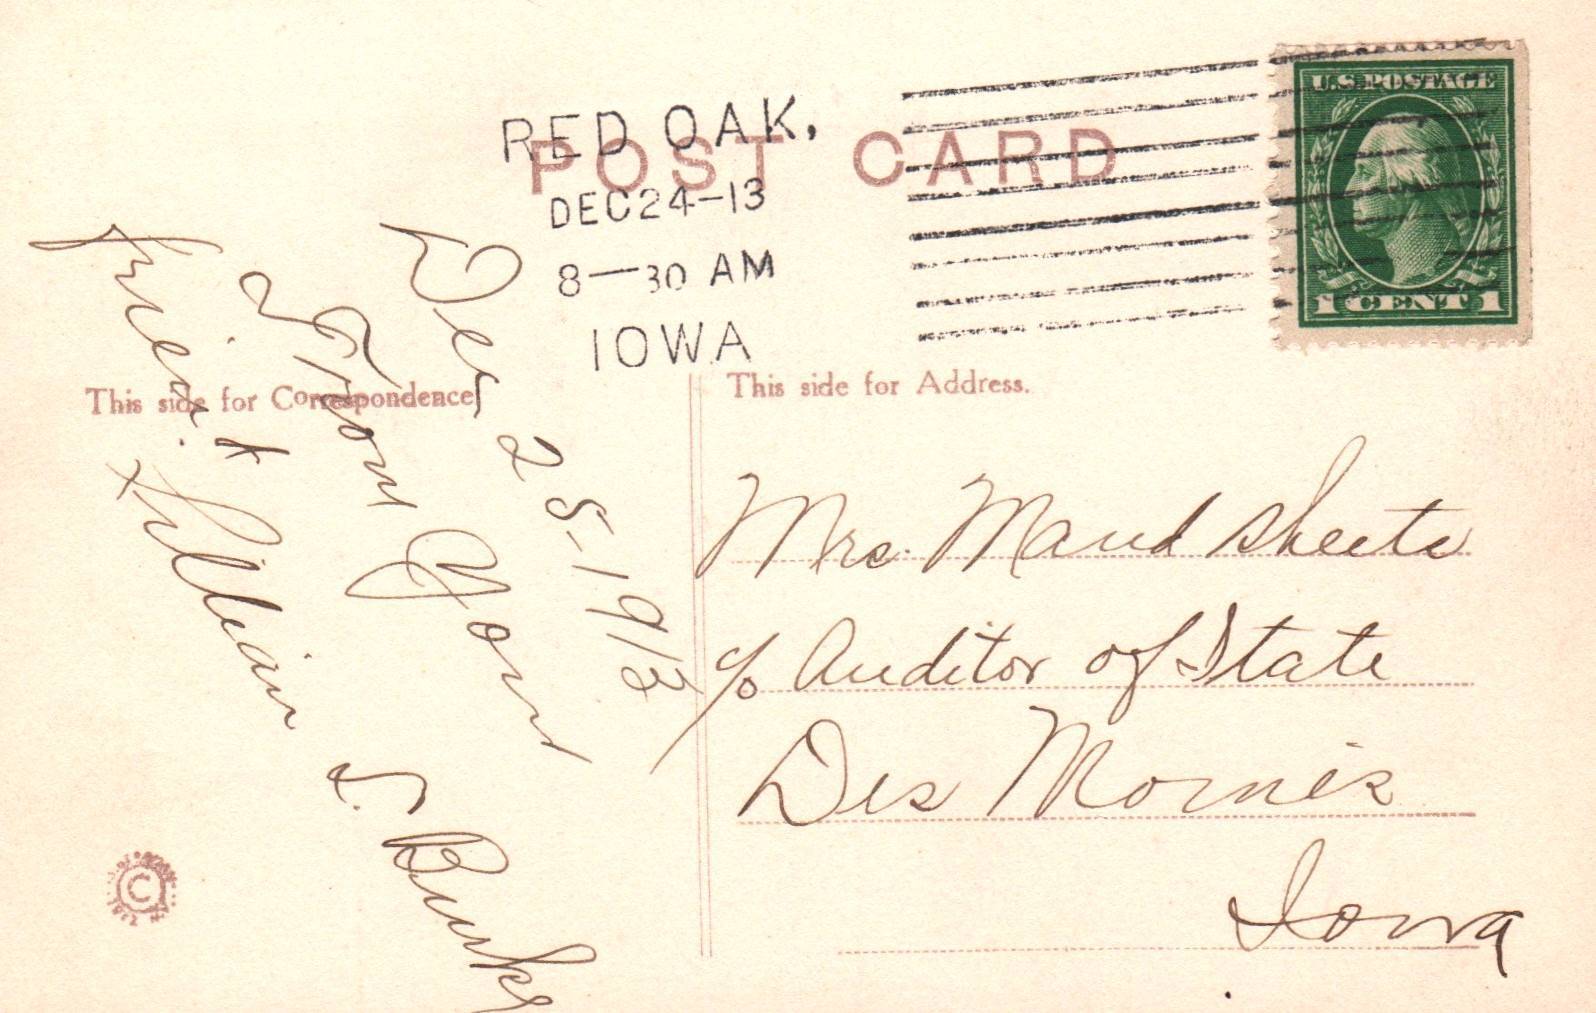 RED OAK,
DEC 24-13
8-30 AM
IOWA
POST CARD
U.S. POSTAGE
1 CENT 1
This side for Correspondence
This side for Address.
Dec 25-1913
From Your
friend
Lillian L. Burke
Mrs. Maud Sheets
c/o Auditor of State
Des Moines
Iowa
C